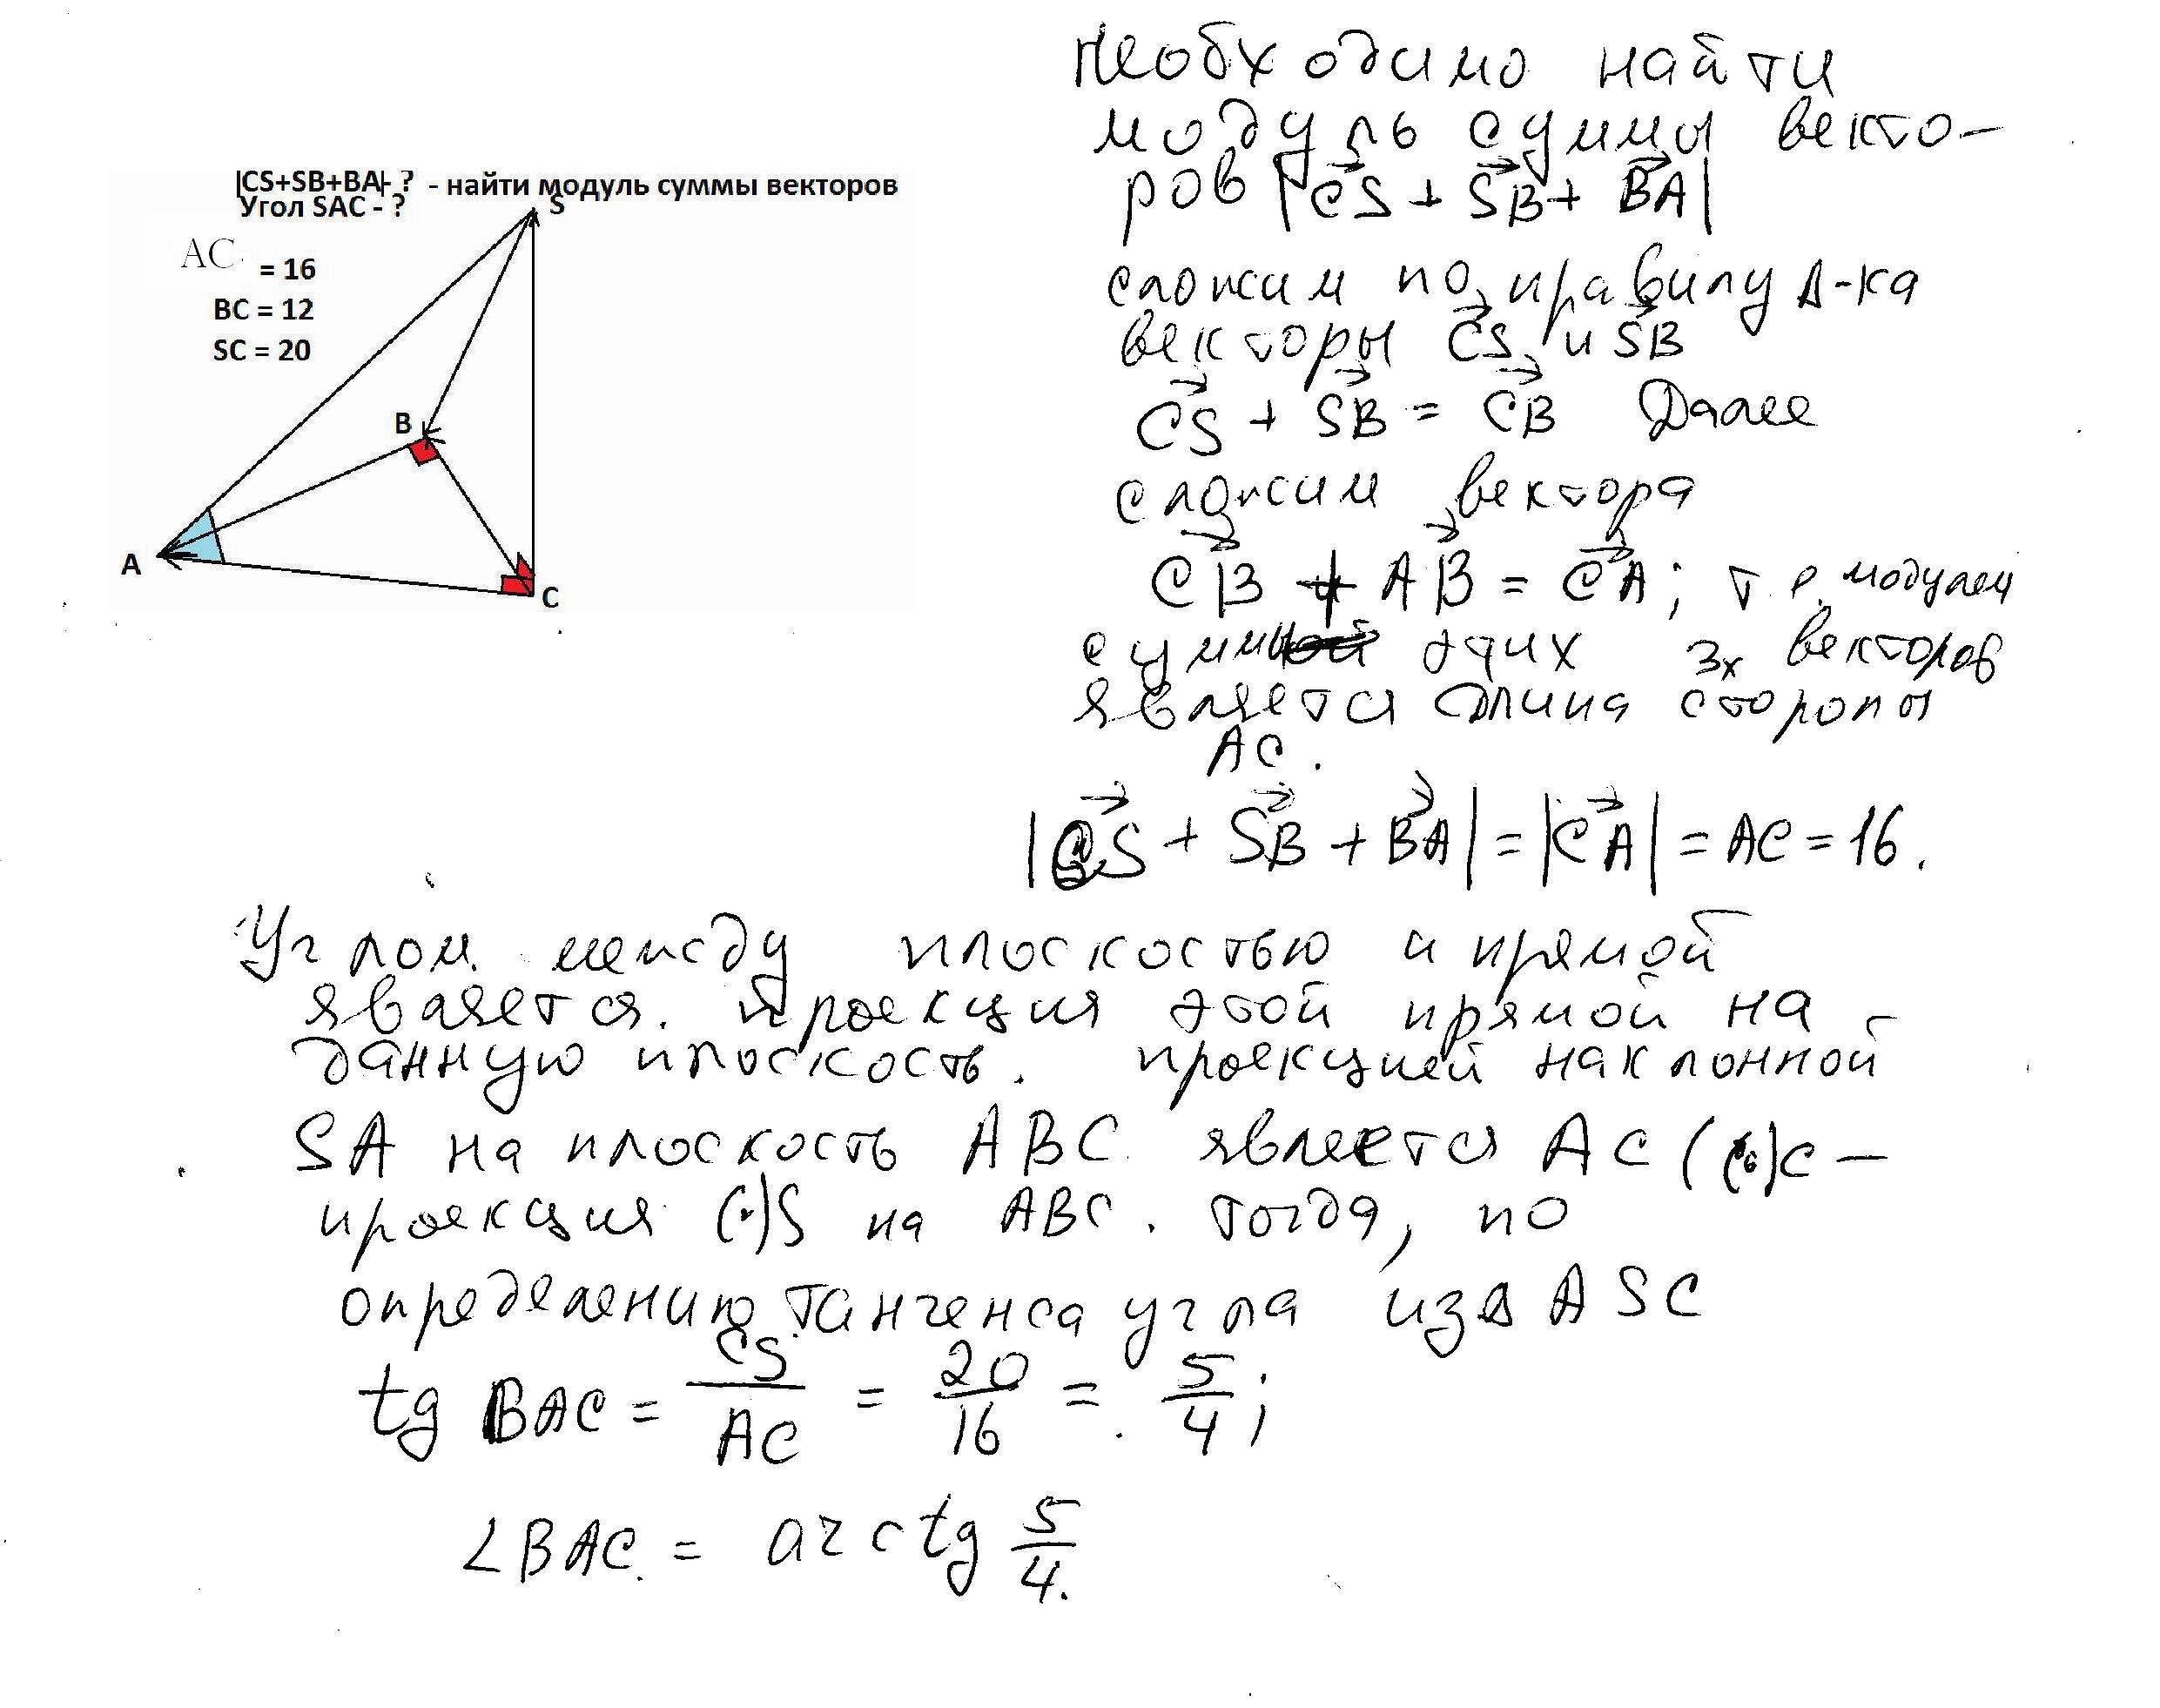 |CS+SB+BA|- ? - найти модуль суммы векторов
Угол SAC - ?
S
AC
= 16
BC = 12
SC = 20
B
A
C
Необходимо найти
модуль суммы векто-
ров |CS + SB + BA|
сложим по правилу Δ-ка
векторы CS и SB
CS + SB = CB Далее
сложим вектора
CB + AB = CA; т.е. модулем
суммы этих 3х векторов
является длина стороны
AC.
|CS + SB + BA| = |CA| = AC = 16.
Углом между плоскостью и прямой
является проекция этой прямой на
данную плоскость. проекцией наклонной
SA на плоскость ABC является AC ((·)C -
проекция (·)S на ABC. Тогда, по
определению тангенса угла из Δ ASC
tg BAC = CS/AC = 20/16 = 5/4;
∠BAC = arctg 5/4.